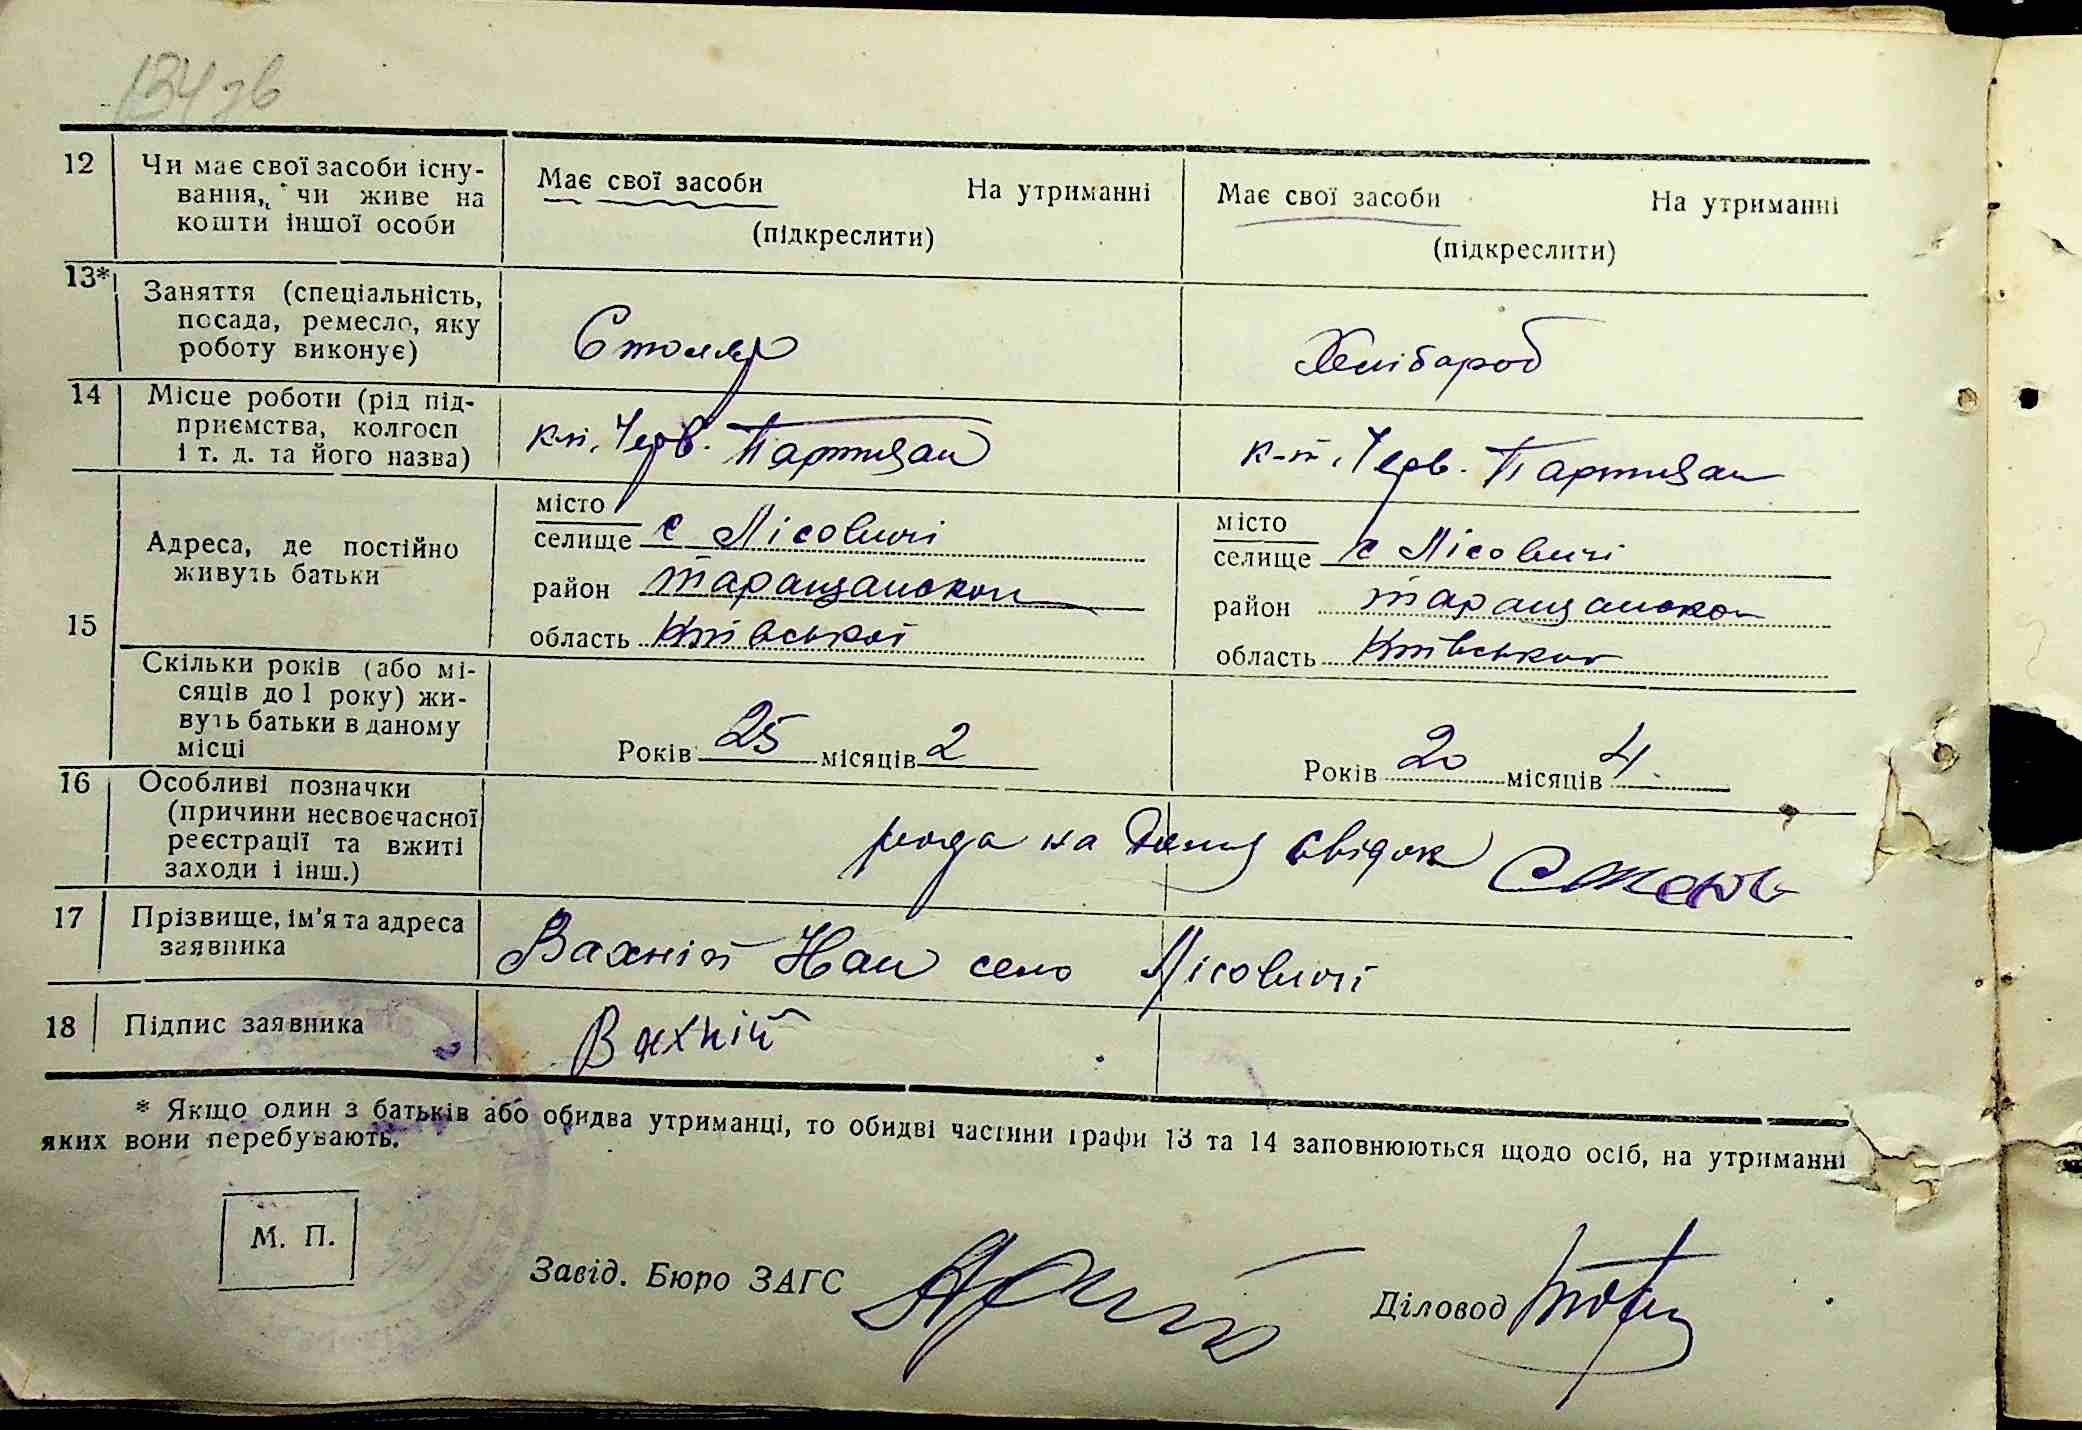 134 зв
12 Чи має свої засоби існу-
вання, чи живе на
кошти іншої особи
Має свої засоби На утриманні
(підкреслити)
Має свої засоби На утриманні
(підкреслити)
13* Заняття (спеціальність,
посада, ремесло, яку
роботу виконує)
Столяр
Хлібароб
14 Місце роботи (рід під-
приємства, колгосп
і т. д. та його назва)
к-т. Черв. Партизан
к-т. Черв. Партизан
15
Адреса, де постійно
живуть батьки
місто
селище с Лісовичі
район таращанскои
область Київської
місто
селище с Лісовичі
район таращанско
область Київськоі
Скільки років (або мі-
сяців до 1 року) жи-
вуть батьки в даному
місці
Років 25 місяців 2
Років 20 місяців 4
16 Особливі позначки
(причини несвоєчасної
реєстрації та вжиті
заходи і інш.)
на свідок
17 Прізвище, ім'я та адреса
заявника
Вахній Нан село Лісовичі
18 Підпис заявника
Вахній
* Якщо один з батьків або обидва утриманці, то обидві частини графи 13 та 14 заповнюються щодо осіб, на утриманні
яких вони перебувають.
М. П.
Завід. Бюро ЗАГС
Діловод